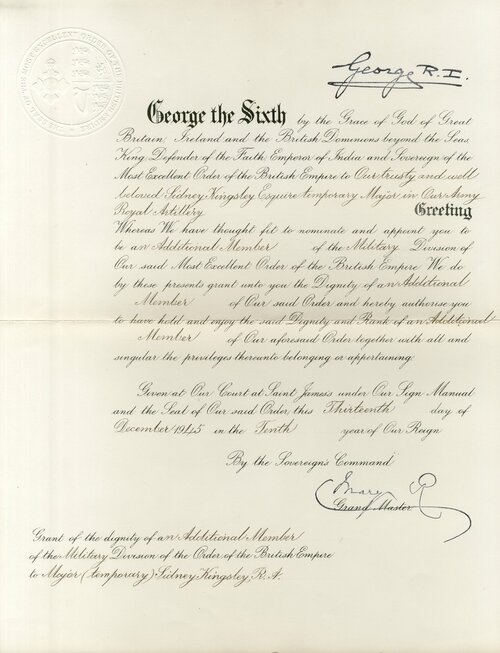 George R.I.
George the Sixth by the Grace of God of Great
Britain, Ireland and the British Dominions beyond the Seas
King, Defender of the Faith, Emperor of India and Sovereign of the
Most Excellent Order of the British Empire to Our trusty and well
beloved Sidney Kingsley Esquire temporary Major in Our Army
Royal Artillery Greeting
Whereas We have thought fit to nominate and appoint you to
be an Additional Member of the Military Division of
Our said Most Excellent Order of the British Empire We do
by these presents grant unto you the Dignity of an Additional
Member of Our said Order and hereby authorise you
to have hold and enjoy the said Dignity and Rank of an Additional
Member of Our aforesaid Order together with all and
singular the privileges thereunto belonging or appertaining.
Given at Our Court at Saint James's under Our Sign Manual
and the Seal of Our said Order this Thirteenth day of
December 1945 in the Tenth year of Our Reign
By the Sovereign's Command
Mary R
Grand Master
Grant of the dignity of an Additional Member
of the Military Division of the Order of the British Empire
to Major (temporary) Sidney Kingsley, R.A.